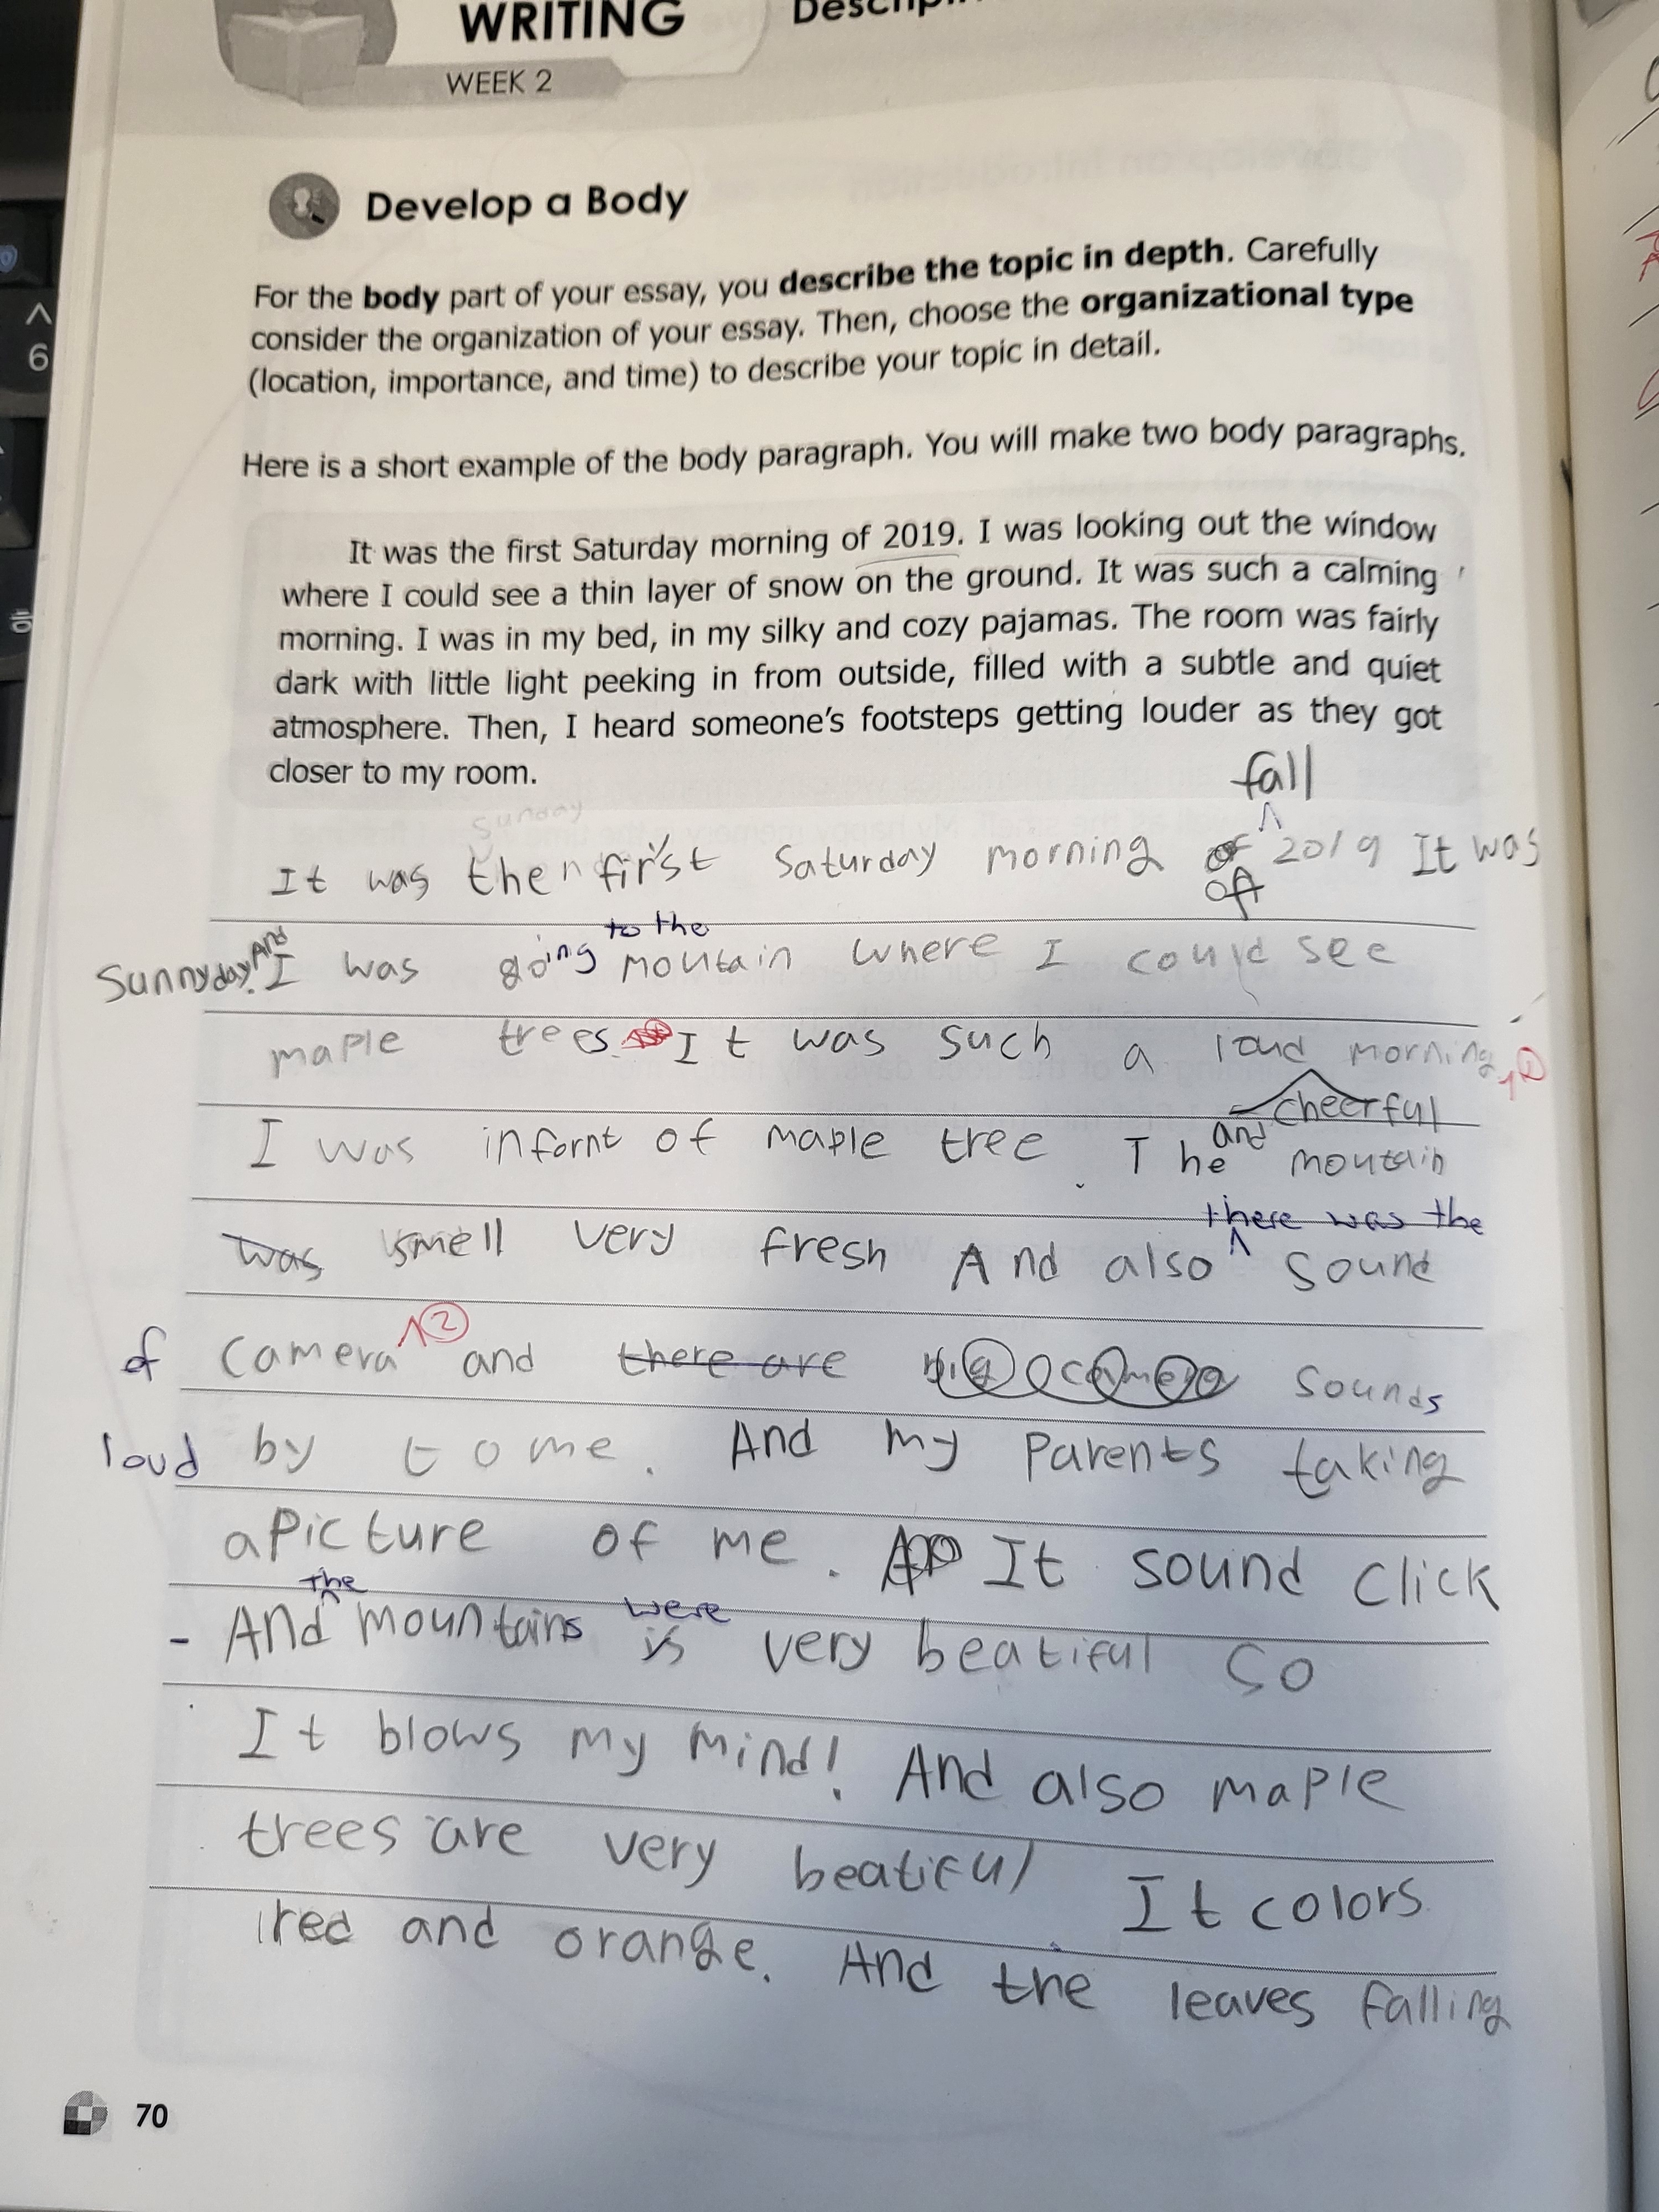 WRITING
WEEK 2
Develop a Body
For the body part of your essay, you describe the topic in depth. Carefully
consider the organization of your essay. Then, choose the organizational type
(location, importance, and time) to describe your topic in detail.
Here is a short example of the body paragraph. You will make two body paragraphs.
It was the first Saturday morning of 2019. I was looking out the window
where I could see a thin layer of snow on the ground. It was such a calming
morning. I was in my bed, in my silky and cozy pajamas. The room was fairly
dark with little light peeking in from outside, filled with a subtle and quiet
atmosphere. Then, I heard someone's footsteps getting louder as they got
closer to my room.
fall
sunday
It was then first Saturday morning of 2019 It was
of
to the
Sunnyday. And I was going moutain where I could see
maple trees. It was such a loud morning 1
cheerful
I was infornt of maple tree. The and moutain
there was the
was smell very fresh And also sound
of camera 2 and there are big camera sounds
loud by to me. And my Parents taking
a Picture of me. It sound click
the were
- And mountains is very beatiful so
It blows my mind! And also maple
trees are very beatiful It colors
red and orange. And the leaves falling
70
6
ㅎ